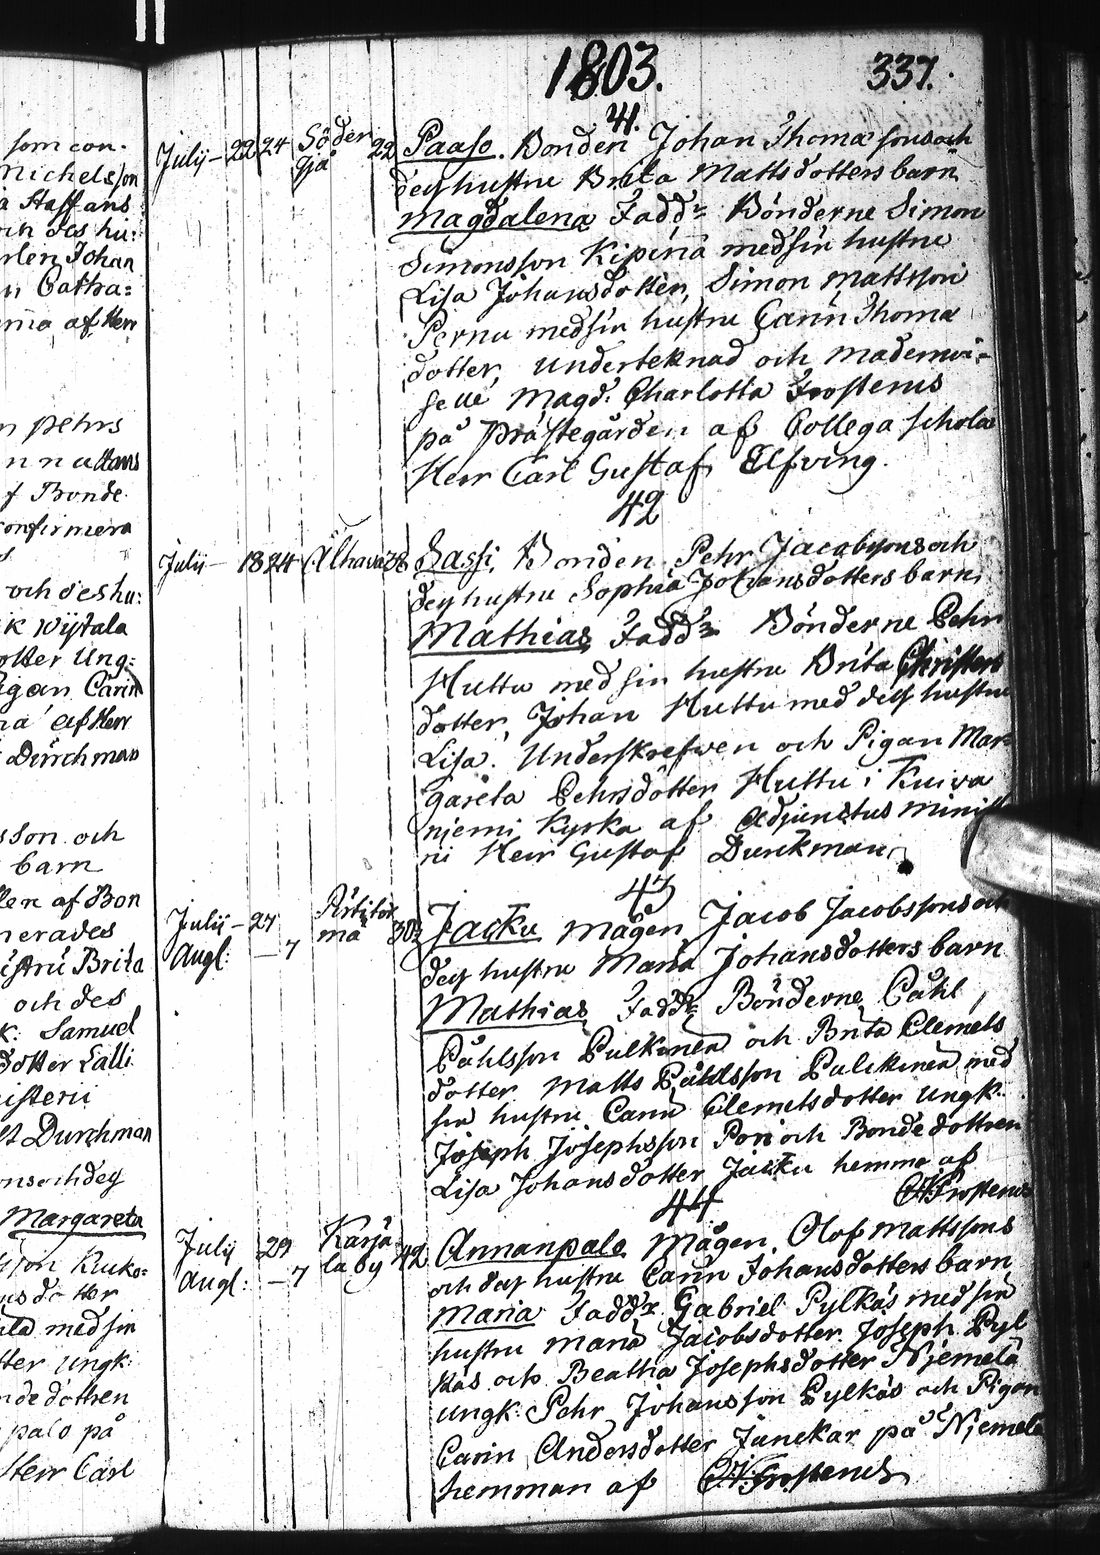 som con-
Michelsson
a Staffans
och des hu:
rlen Johan
n Catha=
af Herr
n Pehrs
f Bonde
confirmera
och des hu:
ik Wijtala
otter Ung=
igan Carin
na af Herr
Durchman
sson och
barn
llen af Bon
nerades
ustru Brita
och des
k: Samuel
dotter Lalli
isterii
Durchman
ons och dess
Margareta
sson Kuko=
ns dotter
med sin
tter ungk:
nde dottren
palo på
Herr Carl
1803.
337.
41.
July – 22 24 Söder
sjä
22
Paaso. Bonden Johan Thomæ sons och
dess hustru Brita Mattsdotters barn
Magdalena Fadd: Bönderne Simon
Simonsson Kipinä med sin hustru
Lisa Johansdotter, Simon Mattsson
Pernu med sin hustru Carin Thomæ
dotter, underteknad och Madernoi-
selle Magd: Charlotta Frosterus
på Prästegården af Collega Scholæ
Herr Carl Gustaf Elfving.
42
July – 18 24 Alhava 38
Lassi, Bonden Pehr Jacobssons och
dess hustru Sophia Johansdotters barn
Mathias Fadd: Bönderne Pehr
Huttu med sin hustru Brita Christers
dotter, Johan Huttu med dess hustru
Lisa. Underskrefven och Pigan Mar=
gareta Pehrsdotter Huttu i Kuiva
njemi Kyrka af Adjunctus Minist
rii Herr Gustaf Durchman
43
July – 27
Augl: – 7
mä
Jacku Mågen Jacob Jacobssons och
dess hustru Maria Johansdotters barn
Mathias Fadd: Bönderne Påhl
Påhlsson Pulkinen och Brita Clemets
dotter Matts Påhlsson Pulckinen med
sin hustru Carin Clemetsdotter ungk:
Joseph Josephsson Pori och Bonde dottren
Lisa Johansdotter Jacku hemma af
Frosterus
44
July 29
Augl: – 7
Karja
laby
42
Annanpalo Mågen Olof Mattssons
och dess hustru Carin Johansdotters barn
Maria Fadd: Gabriel Pylkäs med sin
hustru Maria Jacobsdotter. Joseph Pyl
käs och Beatha Josephsdotter Njemelä
ungk: Pehr Johansson Pylkäs och Pigan
Carin Andersdotter Junekar på Njemelä
hemman af Frosterus